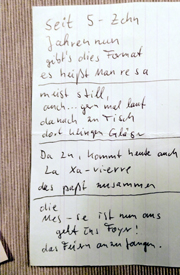 Seit 5 - Zehn
Jahren nun
gibt's dies Format
es heißt Man re sa
meist still,
auch... gern mal laut
danach zu Tisch
dort klingen Gläser
Da zu, kommt heute auch
La Xa - vi erre
das paßt zusammen
die
Mes - se ist nun aus
geht ins Foyer!
das Feiern anzufangen.